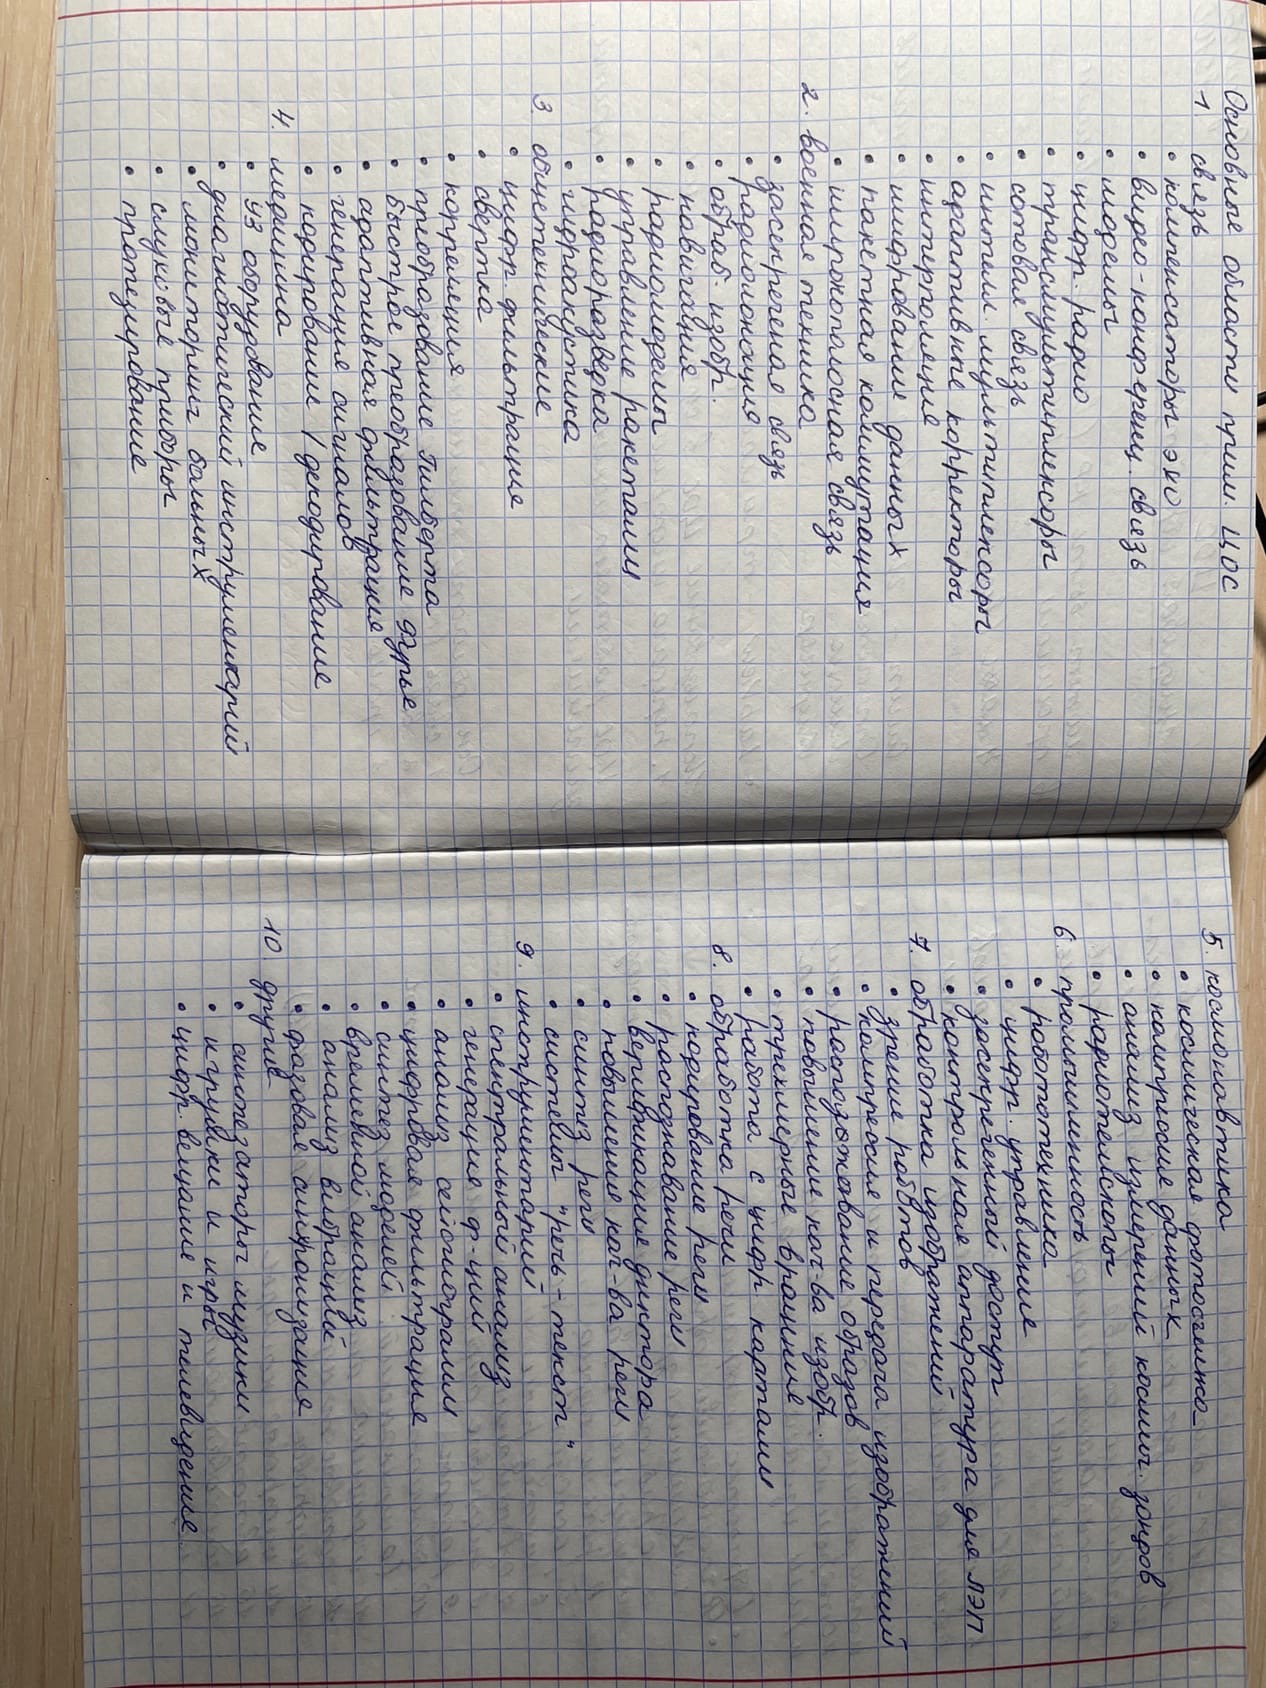 Основные области прим. ЦОС
1. связь
• компенсаторы эхо
• видео-конференц. связь
• модемы
• цифр. радио
• трансмультиплексоры
• сотовая связь
• интелл. мультиплексоры
• адаптивные корректоры
• интерполяция
• шифрование данных
• пакетная коммутация
• широкополосная связь
2. военная техника
• засекреченая связь
• радиолокация
• обраб. изобр.
• навигация
• радиомодемы
• управление ракетами
• радиоразведка
• гидроакустика
3. общетехнические
• цифр. фильтрация
• свертка
• корреляция
• преобразование Гилберта
• быстрое преобразование Фурье
• адаптивная фильтрация
• генерация сигналов
• кодирование / декодирование
4. медицина
• УЗ оборудование
• диагностический инструментарий
• мониторинг больных
• слуховые приборы
• протезирование
5. космонавтика
• космическая фотосъемка
• компрессия данных
• анализ измерений космич. зондов
• радиотелескопы
6. промышленность
• робототехника
• цифр. управление
• засекреченный доступ
• контрольная аппаратура для ЛЭП
7. обработка изображений
• зрение роботов
• компрессия и передача изображений
• распознавание образов
• повышение кач-ва изобр.
• трехмерные вращения
• работа с цифр картами
8. обработка речи
• кодирование речи
• распознавание речи
• верификация диктора
• повышение кач-ва речи
• синтез речи
• системы "речь - текст"
9. инструментарий
• спектральный анализ
• генерация ф-ций
• анализ сейсмограмм
• цифровая фильтрация
• синтез моделей
• временной анализ
• анализ вибраций
• фазовая синхронизация
10 другие
• синтезаторы музыки
• игрушки и игры
• цифр. вещание и телевидение